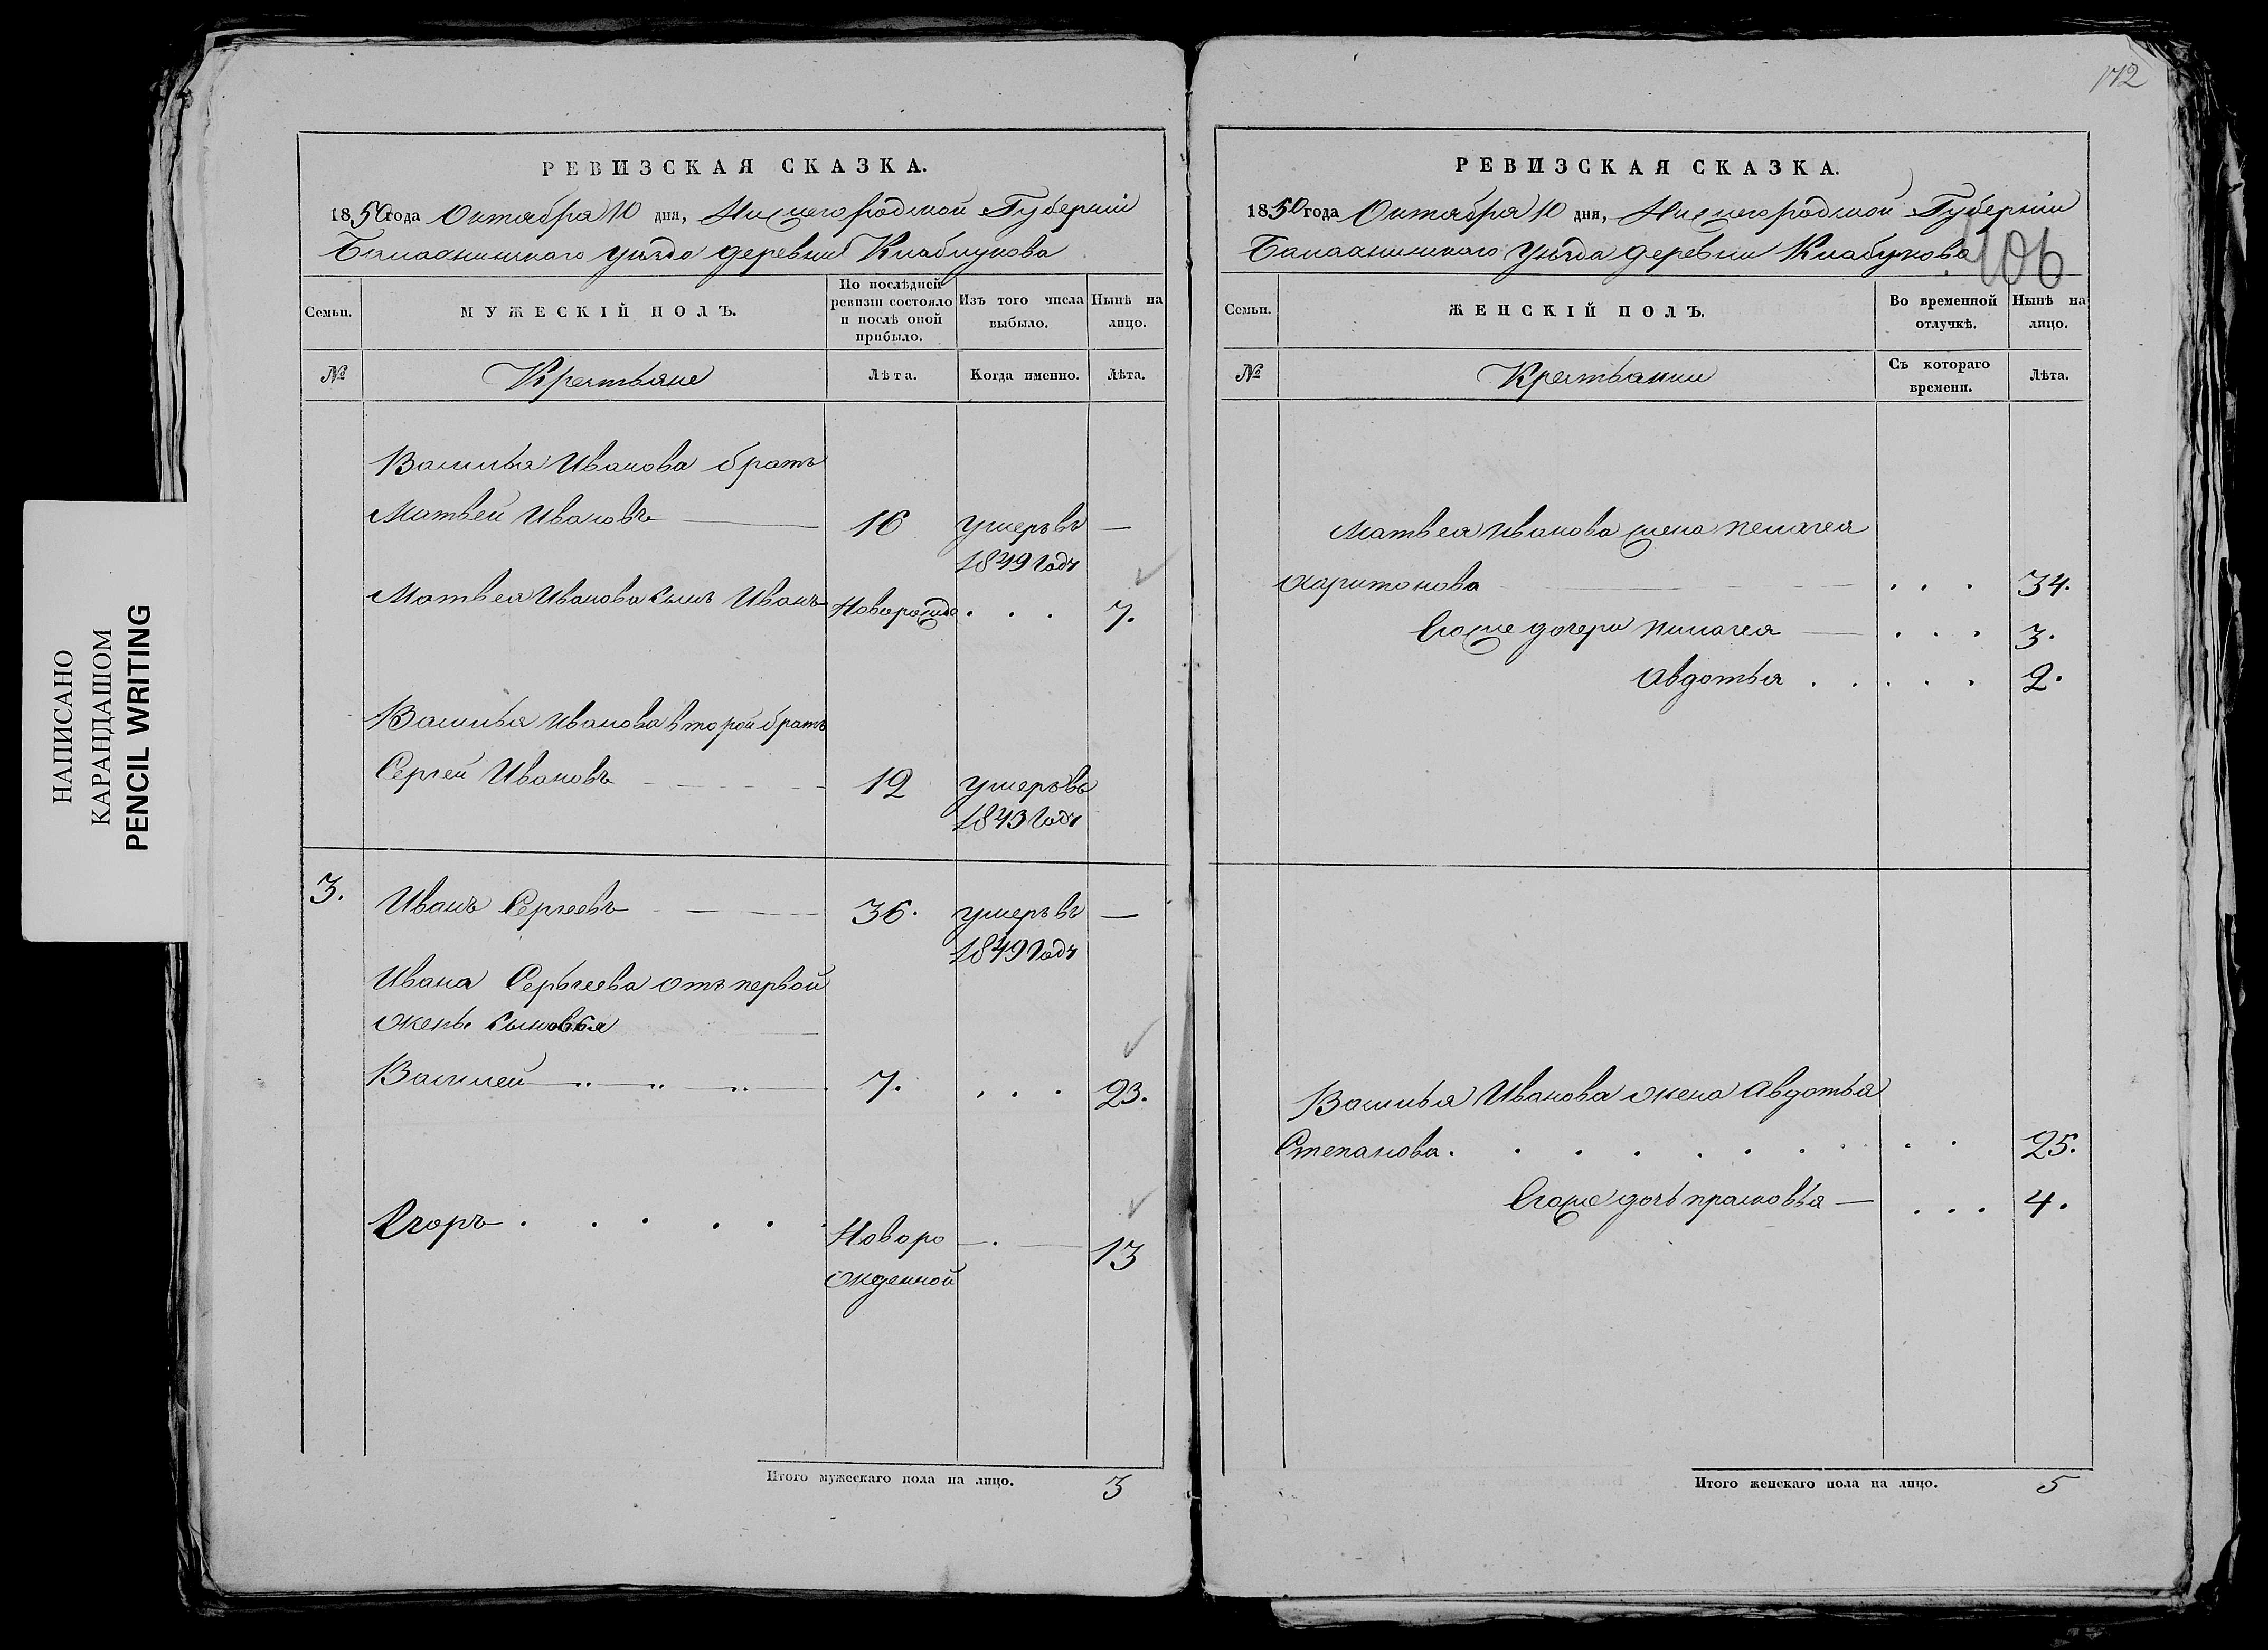 НАПИСАНО
КАРАНДАШОМ
PENCIL WRITING
РЕВИЗСКАЯ СКАЗКА.
1850 года Октября 10 дня, Нижегородской Губернiи
Балахнинскаго уѣзда деревни Клабукова
Семьи.
МУЖЕСКIЙ ПОЛЪ.
По послѣдней ревизiи состояло и послѣ оной прибыло.
Изъ того числа выбыло.
Нынѣ на лицо.
№
Крестьяне
Лѣта.
Когда именно.
Лѣта.
Василья Иванова братъ
Матвей Ивановъ 16 умеръ въ —
1849 годѣ
Матвея Иванова сынъ ИванъНоворожд. . . . 7.
Василья Иванова второй братъ
Сергей Ивановъ 12 умеръ въ
1843 годѣ
3. Иванъ Сергеевъ 36. умеръ въ —
1849 годѣ
Ивана Серьгеева отъ первой
жены сыновья
Василей 7. . . . 23.
Егоръ . . . . . . Новоро 13
жденной
Итого мужескаго пола на лицо. 3
172
РЕВИЗСКАЯ СКАЗКА.
1850 года Октября 10 дня, Нижегородской Губернiи
Балахнинскаго уѣзда деревни Клабукова
106
Семьи.
ЖЕНСКIЙ ПОЛЪ.
Во временной отлучкѣ.
Нынѣ на лицо.
№
Крестьянки
Съ котораго времени.
Лѣта.
Матвея Иванова жена Пелагея
Харитонова . . . 34.
Егоже дочери Пилагея . . . 3.
Авдотья . . . . . 2.
Василья Иванова жена Авдотья
Степанова. . . . . . . . . . 25.
Егоже дочь прасковья — . . . 4.
Итого женскаго пола на лицо. 5